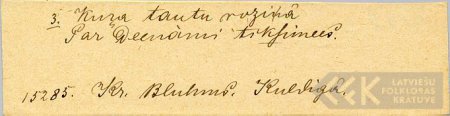 3. Kura tautu rozinâ
Par Deenâmi tiksimees.
15285. Kr. Bluhms. Kuldigâ.
LATVIEŠU
FOLKLORAS
KRATUVE